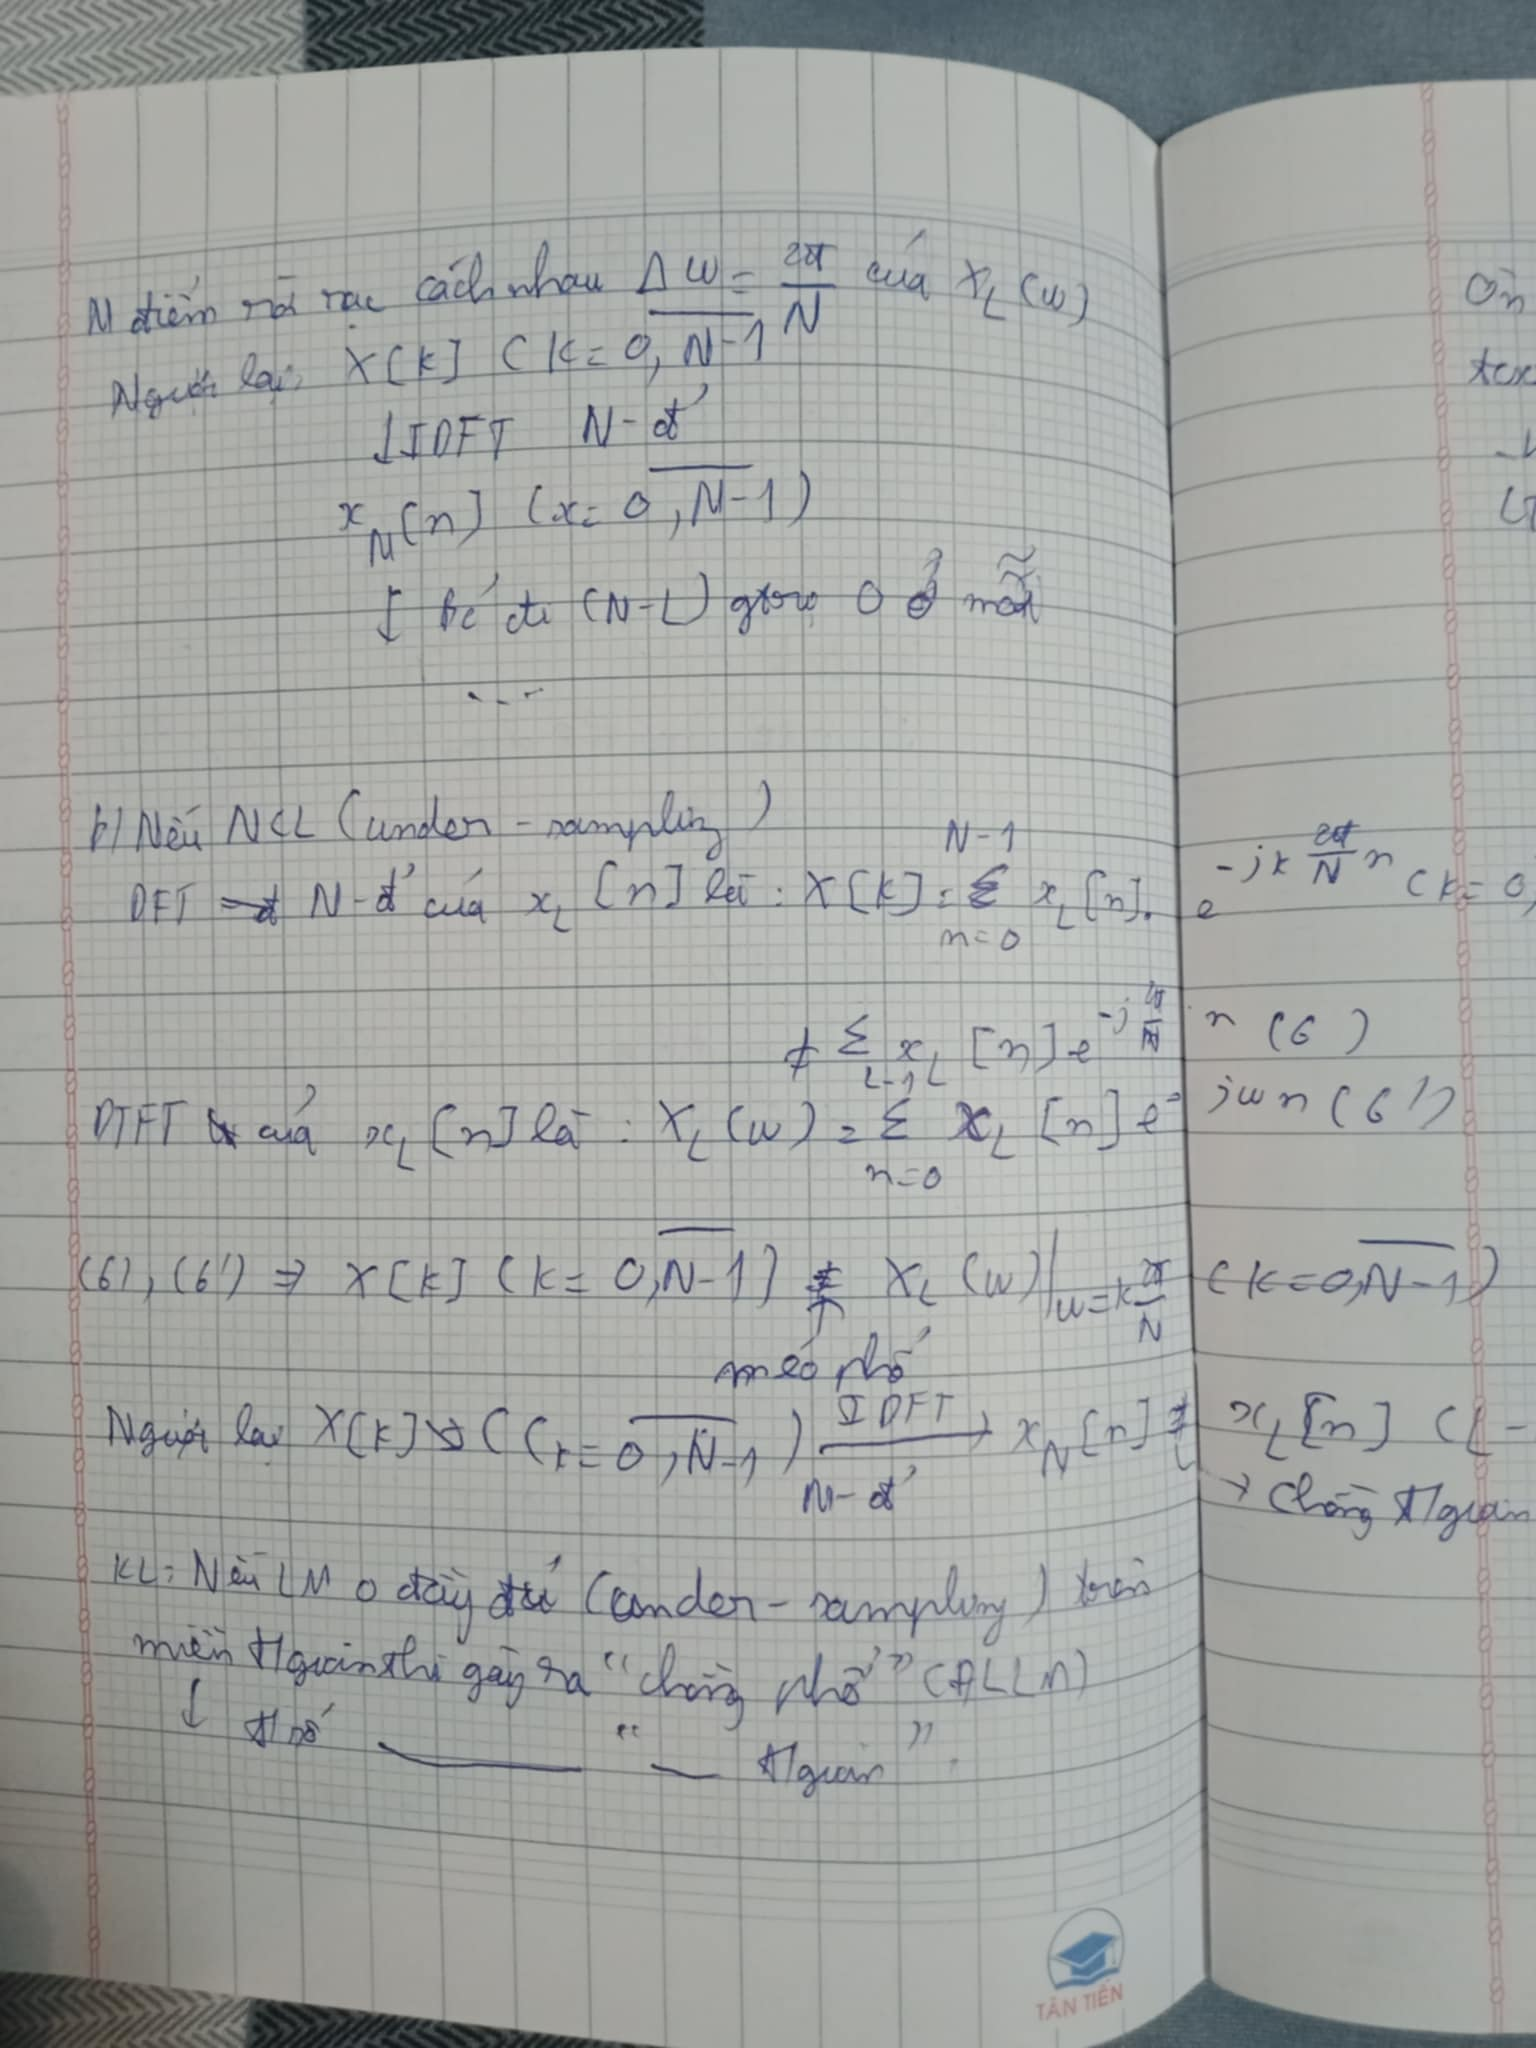 N điểm rời rạc cách nhau Δω = 2π/N của X_L(ω)
Ngược lại: X[k] (k = 0, N-1)
↓ IDFT N-đ'
x_N[n] (x = 0, N-1)
↓ bỏ đi (N-L) gtrị 0 ở mỗi
...
b/ Nếu N<L (under-sampling)
DFT N-đ' của x_L[n] là: X[k] = Σ_{n=0}^{N-1} x_L[n]. e^{-jk 2π/N n} (k = 0,
≠ Σ x_L[n] e^{-j 2π/N n} (6)
L-1
DTFT của x_L[n] là: X_L(ω) = Σ_{n=0} x_L[n] e^{-jωn} (6')
(6), (6') ⇒ X[k] (k = 0, N-1) ≠ X_L(ω)|_{ω = k 2π/N} (k = 0, N-1)
↑
méo phổ
Ngược lại X[k] ((k = 0, N-1) IDFT N-đ' → x_N[n] ≠ x_L[n] (L-
→ Chồng t/gian
KL: Nếu LM 0 đầy đủ (under-sampling) trên
miền t/gian thì gây ra "chồng phổ" (ALLM)
↓ t/số ——— " — t/gian".
Ôn
TÂN TIẾN